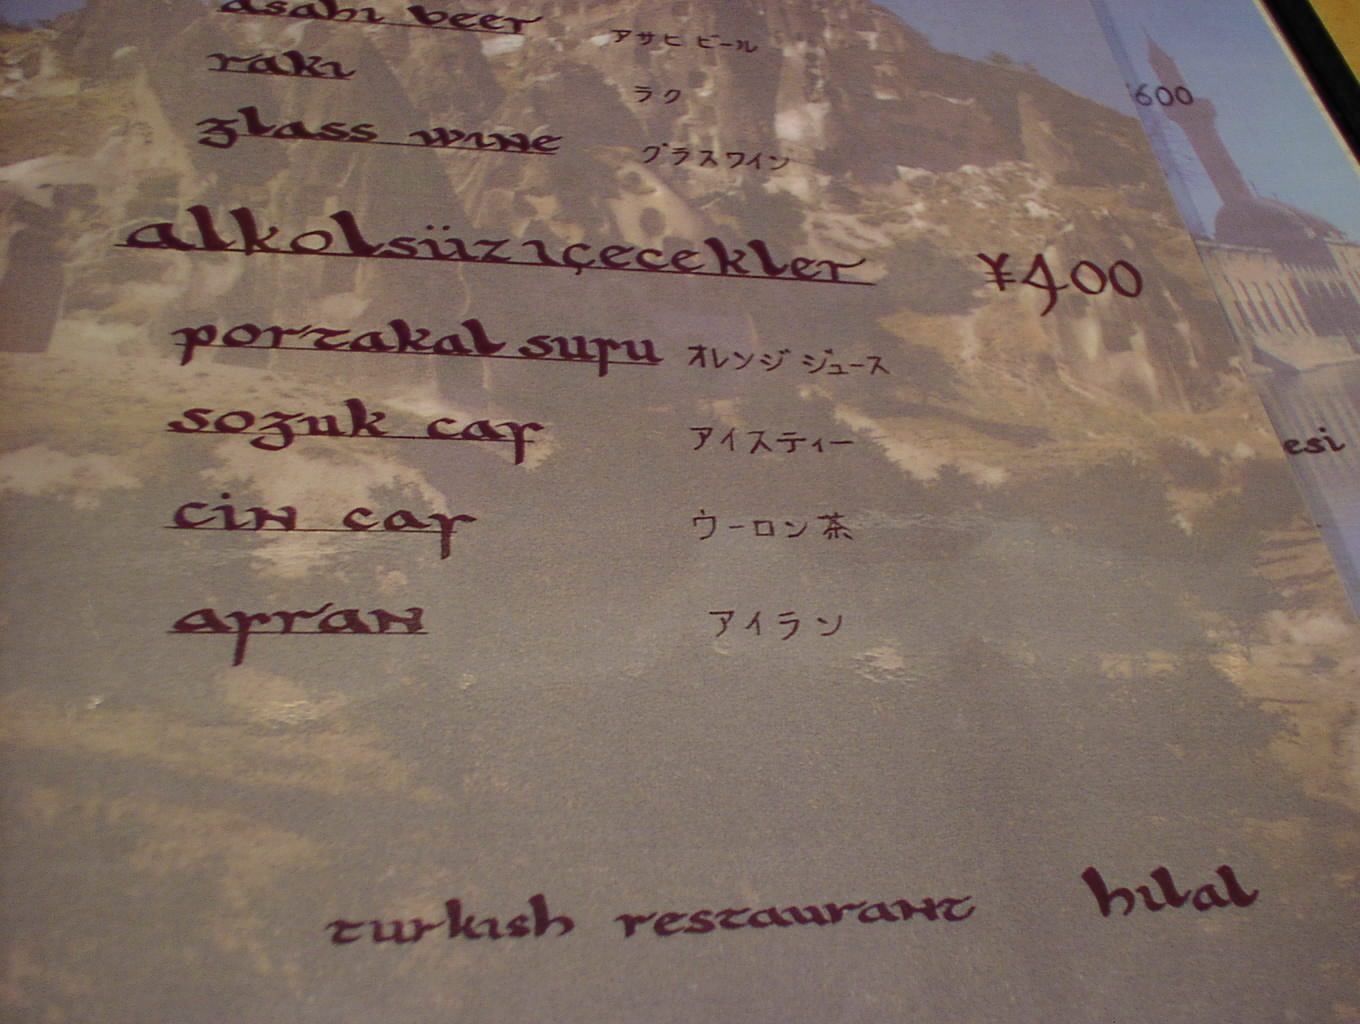 asabı beer アサヒ ビール
rakı ラク
600
glass wıne グラスワイン
alkolsüz ıçecekler ¥400
portakal suyu オレンジ ジュース
soguk cay アイスティー
esi
cin cay ウーロン茶
ayran アイラン
turkısh restaurant hılal